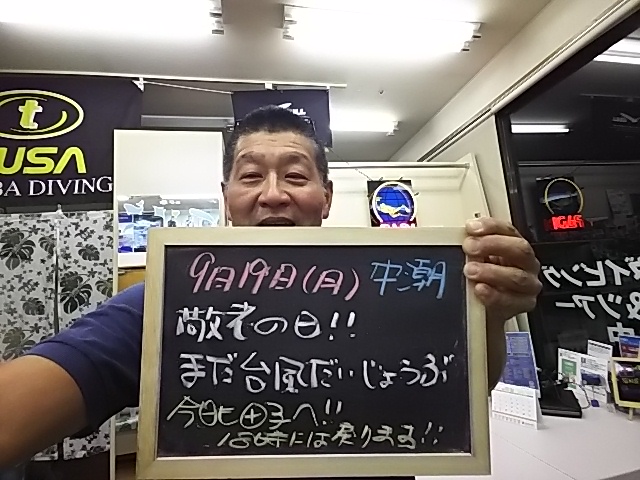 USA
BA DIVING
9月19日(月) 中潮
敬老の日!!
まだ台風だいじょうぶ
今日も
へ!!
18時には戻ります!!
ダイビング
&ツアー